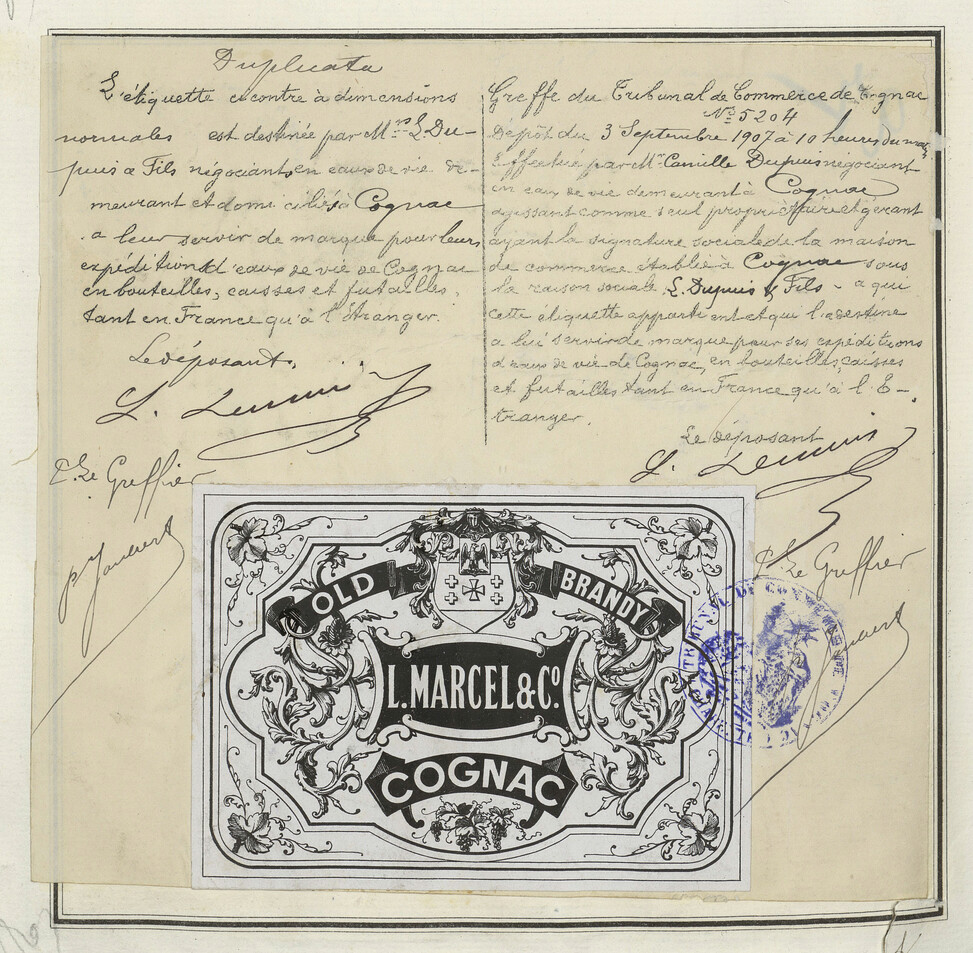 Duplicata
L'étiquette ci contre à dimensions
normales est destinée par Mrs L. Du-
puis & Fils négociants en eaux de vie de-
meurant et domiciliés à Cognac
a leur servir de marque pour leurs
expéditions d'eaux de vie de Cognac
en bouteilles, caisses et futailles,
tant en France qu'à l'Étranger.
Le déposant,
P. Le Greffier
Greffe du Tribunal de Commerce de Cognac
No 5204
Dépôt du 3 Septembre 1907 à 10 heures du matin
Effectué par Mr Camille Dupuis négociant
en eaux de vie demeurant à Cognac
agissant comme seul propriétaire et gérant
ayant la signature sociale de la maison
de commerce établie à Cognac sous
la raison sociale L. Dupuis & Fils - a qui
cette étiquette appartient et qui l'a destine
a lui servir de marque pour ses expéditions
d'eaux de vie de Cognac, en bouteilles, caisses
et futailles tant en France qu'à l'E-
tranger.
Le déposant
P. Le Greffier
OLD BRANDY
L. MARCEL & Co.
COGNAC
TRIBUNAL DE COMMERCE DE